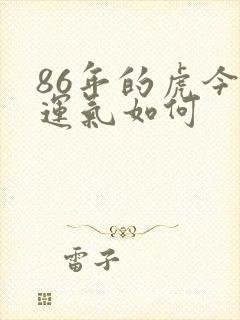 86年的虎今
運氣如何
雷子